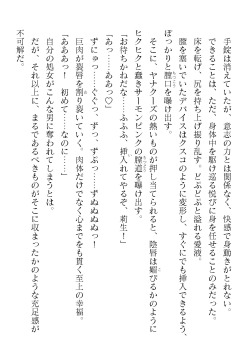 手錠は消えていたが、意志の力とは関係なく、快感で身動きがとれない。
できることは、ただ、身体中を駆け巡る悦びに身を任せることのみだった。
床を転げ、尻を持ち上げ振り乱す。どぷどぷと溢れる愛液。
膣を塞いでいたデバイスはクスコのように変形し、すぐにでも挿入できるよう、
ぽっかりと膣口を曝け出す。
そこに、ヤナクーズの熱いものが押し当てられると、陰唇は媚びるかのように
ヒクヒクと蠢きサーモンピンクの膣道を曝け出す。
「お待ちかねだな……ふふふ 挿入れてやるぞ、莉生！」
「あっ……ああっ♡」
ずにゅっ……ぐぐっ ずっ ずぷっ……ずぬぬぬっ！
巨肉が襞唇を割り裂いていく。肉体だけでなく心までをも貫く至上の幸福。
「あああっ！ 初めて……なのに……」
自分の処女がこんな男に奪われてしまうとは。
だが、それ以上に、まるであるべきものがそこに収まったかのような充足感が
不可解だ。